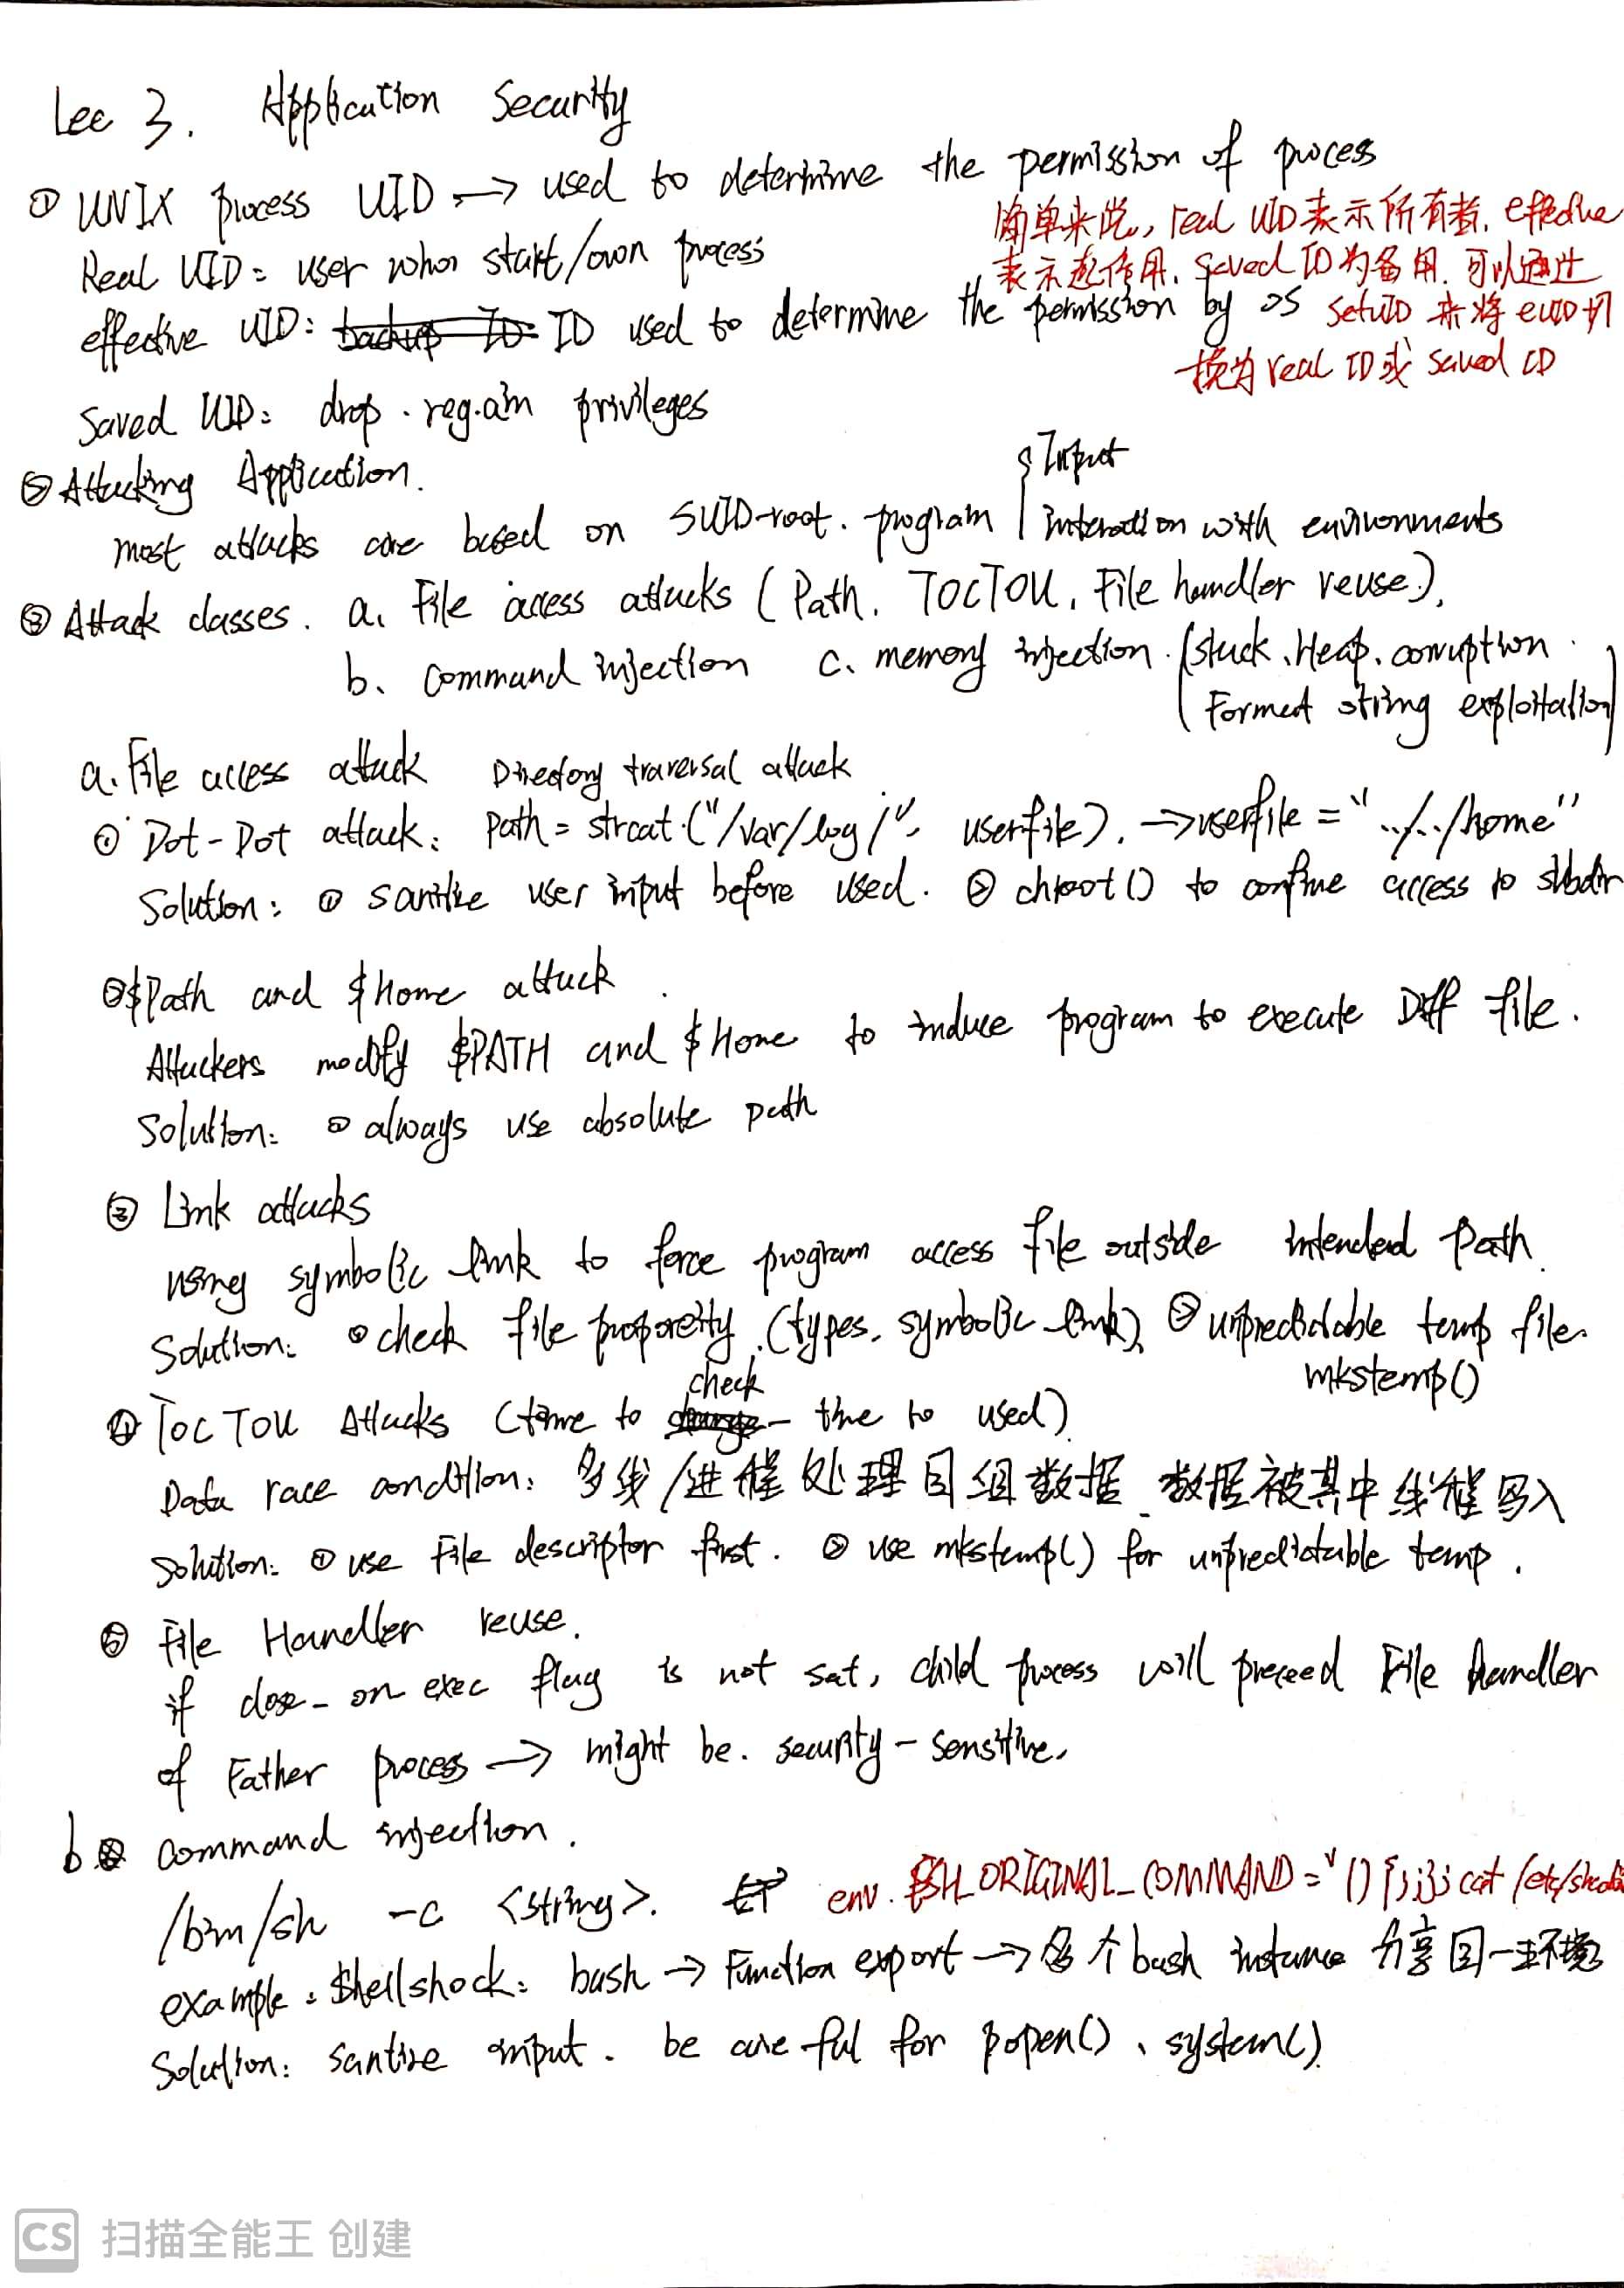 Lec 3. Application Security
① UNIX process UID → used to determine the permission of process
简单来说, real UID表示所有者, effective
Real UID: user whos start/own process
表示起作用, saved ID为备用, 可以通过
effective UID: ID used to determine the permission by OS
setUID 来将 euID切
换为 real ID或 saved ID
Saved UID: drop. regain privileges
② Attacking Application.
most attacks are based on SUID-root. program { Input
interaction with environments
③ Attack classes. a. File access attacks (Path. TOCTOU. File handler reuse).
b. command injection c. memory injection. (stack. Heap. corruption.
Format string exploitation)
a. File access attack Directory traversal attack
① Dot-Dot attack: Path = strcat("/var/log/", userfile). → userfile = "../../home"
Solution: ① sanitize user input before used. ② chroot() to confine access to subdir
② $Path and $Home attack.
Attackers modify $PATH and $Home to induce program to execute Diff file.
Solution: ① always use absolute path
③ Link attacks
using symbolic link to force program access file outside intended path.
Solution: ① check file proporeity (types, symbolic link). ② unpredictable temp file.
mkstemp()
④ TOCTOU Attacks (time to check - time to used)
Data race condition: 多线/进程处理同组数据. 数据被其中线程写入
Solution: ① use File descriptor first. ② use mkstemp() for unpredictable temp.
⑤ File Handler reuse.
if close-on exec flag is not set, child process will preceed File handler
of Father process → might be. security-sensitive.
b. command injection.
/bin/sh -c <string>. env. $SSH_ORIGINAL_COMMAND="() {:;}; cat /etc/shadow
example: Shellshock: bash → Function export → 各个bash instance 分享同一环境
Solution: santise input. be careful for popen(), system()
CS 扫描全能王 创建